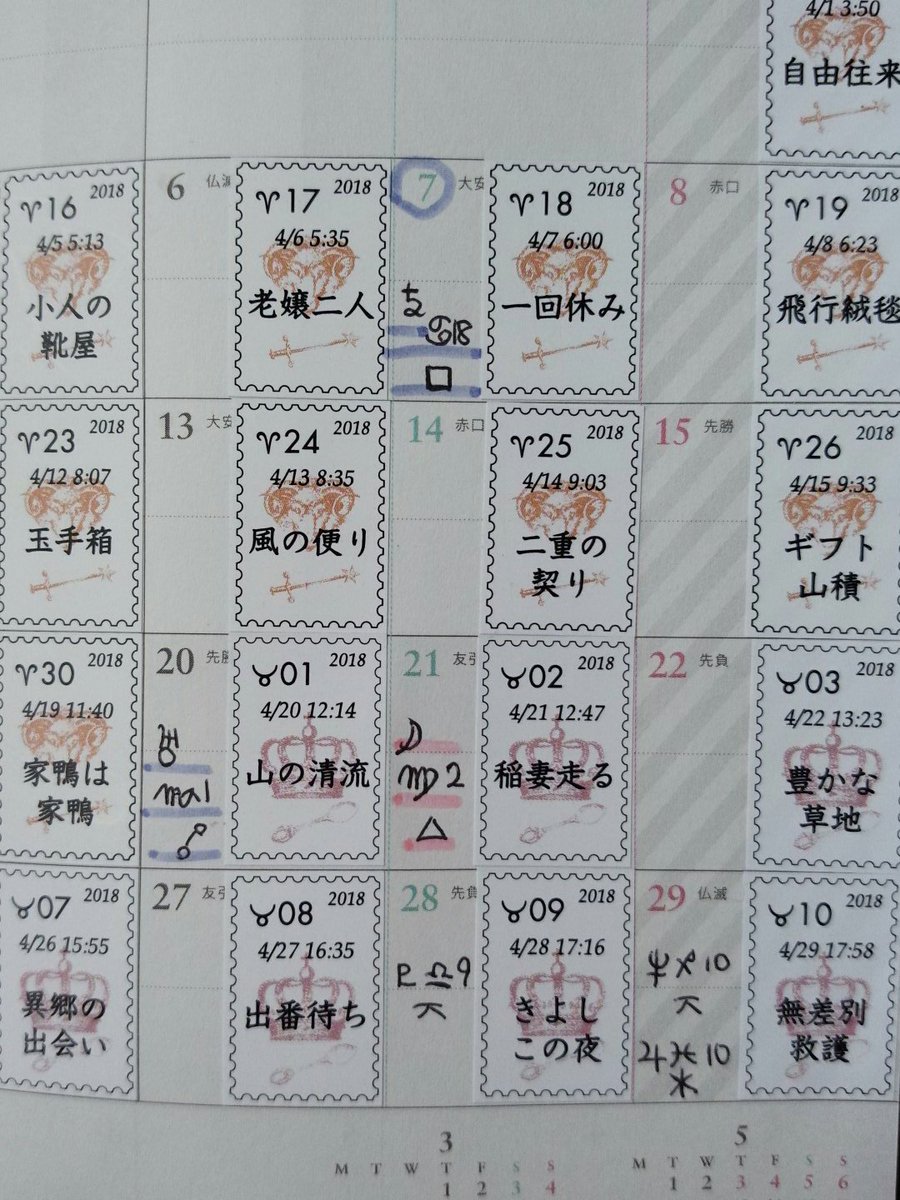 4/1 3:50
自由往来
♈16 2018
4/5 5:13
小人の
靴屋
6 仏滅
♈17 2018
4/6 5:35
老嬢二人
7 大安
♄
♋18
□
♈18 2018
4/7 6:00
一回休み
8 赤口
♈19 2018
4/8 6:23
飛行絨毯
♈23 2018
4/12 8:07
玉手箱
13 大安
♈24 2018
4/13 8:35
風の便り
14 赤口
♈25 2018
4/14 9:03
二重の
契り
15 先勝
♈26 2018
4/15 9:33
ギフト
山積
♈30 2018
4/19 11:40
家鴨は
家鴨
20 先勝
♅
☍
♉01 2018
4/20 12:14
山の清流
21 友引
☽
♍2
△
♉02 2018
4/21 12:47
稲妻走る
22 先負
♉03 2018
4/22 13:23
豊かな
草地
♉07 2018
4/26 15:55
異郷の
出会い
27 友引
♉08 2018
4/27 16:35
出番待ち
28 先負
♎9
⚻
♉09 2018
4/28 17:16
きよし
この夜
29 仏滅
10
⚻
♃♓10
⚹
♉10 2018
4/29 17:58
無差別
救護
3
M T W T F S S
1 2 3 4
5
M T W T F S S
1 2 3 4 5 6